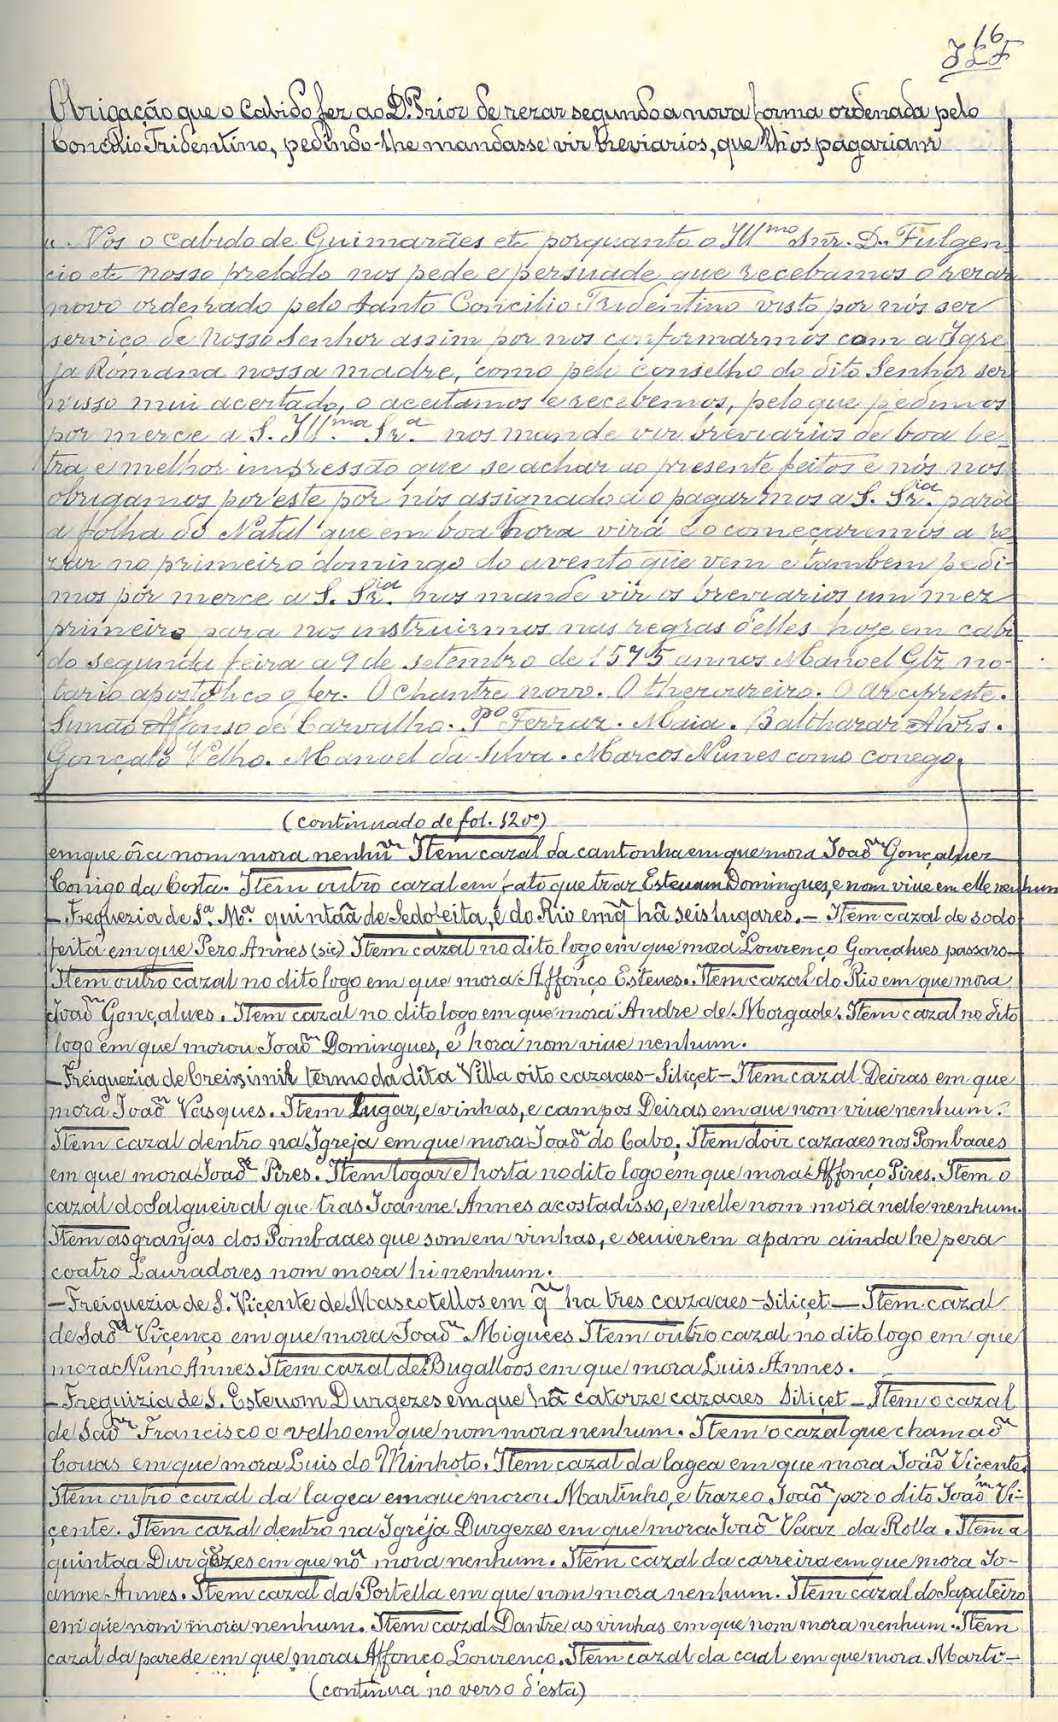 16
JLF
Obrigação que o Cabido fez ao D. Prior de rezar segundo a nova forma ordenada pelo
Concilio Tridentino, pedindo-lhe mandasse vir breviarios, que lh'os pagariam
Nos o cabido de Guimarães etc porquanto o Illmo Snr. D. Fulgen-
cio etc nosso prelado nos pede e persuade que recebamos o rezar
novo ordenado pelo santo Concilio Tridentino visto por nós ser
serviço de Nosso Senhor assim por nos conformarmos com a Igre-
ja Romana nossa madre, como pelo conselho do dito Senhor ser
nisso mui acertado, o aceitamos e recebemos, pelo que pedimos
por merce a S. Illma Sra nos mande vir breviarios de boa le-
tra e melhor impressão que se achar ao presente feitos e nós nos
obrigamos por este por nós assignado a o pagarmos a S. Sria. para
a folha do Natal que em boa hora virá e o começaremos a re-
zar no primeiro domingo do avento que vem e tambem pedi-
mos por merce a S. Sria. nos mande vir os breviarios um mez
primeiro para nos instruirmos nas regras d'elles hoje em cabi-
do segunda feira a 9 de setembro de 1575 annos Manoel Glz no-
tario apostolico o fez. O chantre novo. O thezoureiro. O arcipreste.
Simão Affonso de Carvalho. Po Ferraz. Maia. Balthazar Alvrs.
Gonçalo Velho. Manoel da Silva. Marcos Nunes como conego.
(continuado de fol. 12 vo)
emque óra nom mora nenhũ Item cazal da cantonha em que mora Joaõ Gonçalvez
Conigo da Costa. Item outro cazal em fato que traz Esteuam Domingues, e nom viue em elle nenhum
- Freguezia de Sa. Ma. quintãa de Sedofeita, é do Rio em q̃ hã seis lugares. - Item cazal de sodo
feita em que Pero Annes (sic) Item cazal no dito logo em que mora Lourenço Gonçalves passaro-
Item outro cazal no dito logo em que mora Affonço Esteues. Item cazal do Rio em que mora
Joaõ Gonçalves. Item cazal no dito logo em que mora Andre de Morgade. Item cazal no dito
logo em que morou Joaõ Domingues, e hora nom viue nenhum.
- Freiguezia de Creiximil termo da dita Villa oito cazaaes - Siliçet - Item cazal Deiras em que
mora Joaõ Vasques. Item Lugar, e vinhas, e campos Deiras em que nom viue nenhum.
Item cazal dentro na Igreja em que mora Joaõ do Cabo. Item doiz cazaaes nos Pombaaes
em que mora Joaõ Pires. Item logar e horta no dito logo em que mora Affonço Pires. Item o
cazal do Salgueiral que tras Joanne Annes acostadisso, e nelle nom mora nelle nenhum.
Item as granjas dos Pombaaes que som em vinhas, e seuverem apam ainda he pera
coatro Lauradores nom mora hi nenhum.
- Freiguezia de S. Viçente de Mascotellos em q̃ ha tres cazaaes - Siliçet - Item cazal
de Saõ Viçenço em que mora Joaõ Miguees Item outro cazal no dito logo em que
mora Nuno Annes Item cazal de Bugalloos em que mora Luis Annes.
- Freguizia de S. Esteuom Durgezes em que hã catorze cazaaes Siliçet - Item o cazal
de Saõ Francisco o velho em que nom mora nenhum. Item o cazal que chamaõ
Couas em que mora Luis do Minhoto. Item cazal da lagea em que mora Joaõ Viçente.
Item outro cazal da lagea em que morou Martinho, e trazeo Joaõ por o dito Joaõ Vi-
çente. Item cazal dentro na Igreja Durgezes em que mora Joaõ Vaaz da Rolla. Item a
quintaa Durgezes em que nõ mora nenhum. Item cazal da carreira em que mora Jo-
anne Annes. Item cazal da Portella em que nom mora nenhum. Item cazal do Sapateiro
em que nom mora nenhum. Item cazal Dantre as vinhas em que nom mora nenhum. Item
cazal da parede em que mora Affonço Lourenço. Item cazal da caal em que mora Marti-
(continua no verso d'esta)